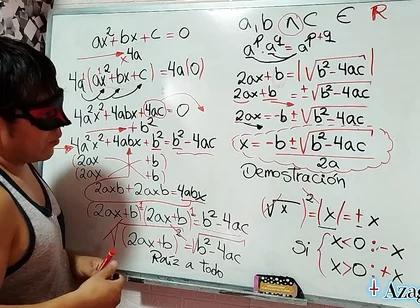 ax² + bx + c = 0
x4a
4a(ax² + bx + c) = 4a(0)
4a²x² + 4abx + 4ac = 0
+ b²
4a²x² + 4abx + b² = b² - 4ac
(2ax + b)
(2ax + b)
2axb + 2axb = 4abx
(2ax + b)¹ (2ax + b)¹ = b² - 4ac
√(2ax + b)² = √b² - 4ac
Raíz a todo
a, b ∧ C ∈ R
a^p · a^q = a^(p+q)
2ax + b = |√b² - 4ac|
2ax + b = ±√b² - 4ac
2ax = -b ±√b² - 4ac
x = -b ±√b² - 4ac
2a
Demostración
(√x)² = |x| = ± x
Si { x < 0 : - x
x > 0 : + x
+ Azag